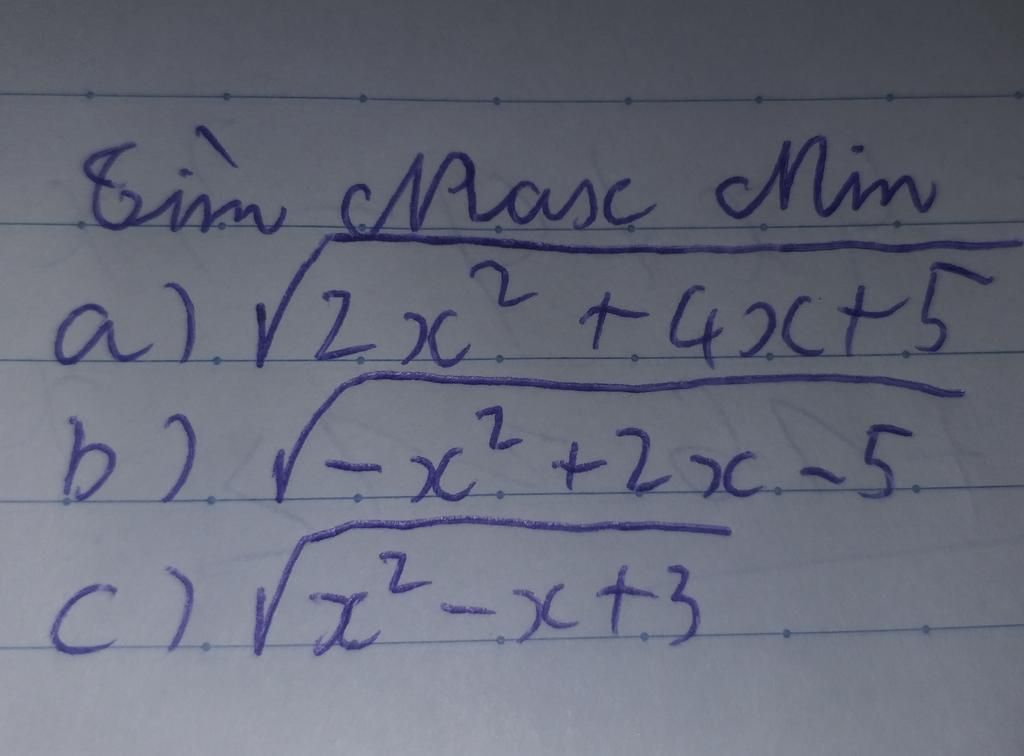 Tìm Max Min
a) √(2x² + 4x + 5)
b) √(-x² + 2x - 5)
c) √(x² - x + 3)